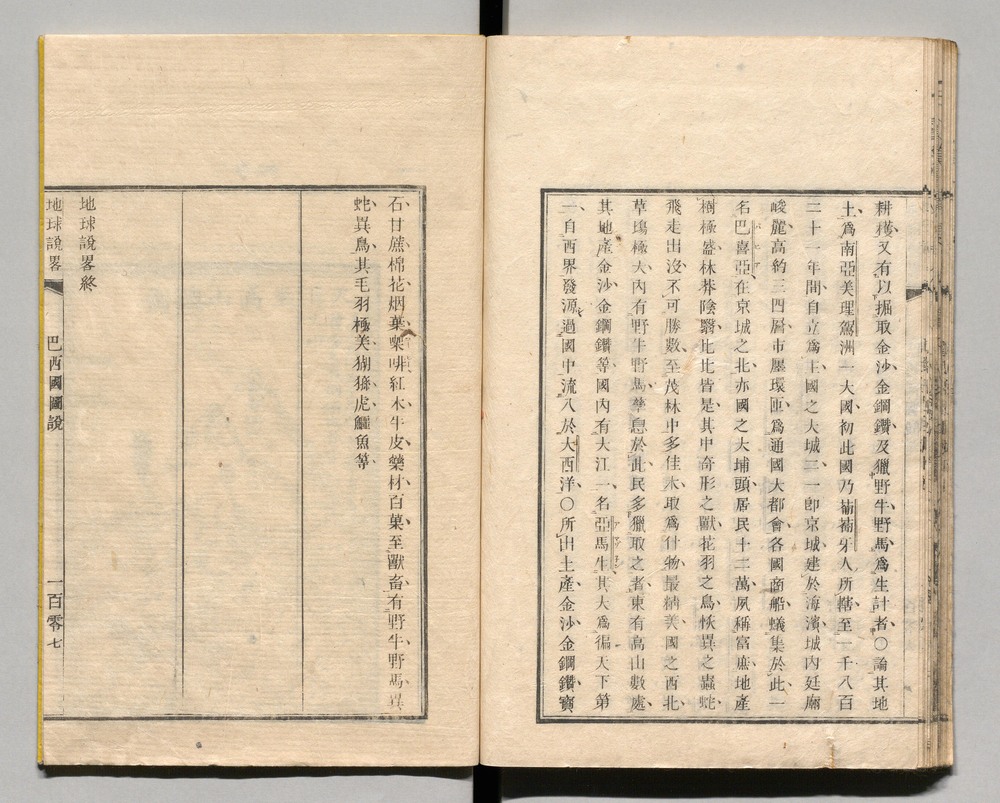 耕穫又有以掘取金沙金鋼鑽及獵野牛野馬爲生計者○論其地
土爲南亞美理駕洲一大國初此國乃葡萄牙人所轄至一千八百
二十一年間自立爲主國之大城二一卽京城建於海濱城內廷廟
峻麗高約三四層市廛環匝爲通國大都會各國商船蟻集於此一
名巴喜亞在京城之北亦國之大埔頭居民十二萬夙稱富庶地產
樹極盛林莽陰翳比比皆是其中奇形之獸花羽之鳥怪異之蟲蛇
飛走出沒不可勝數至茂林中多佳木取爲什物最精美國之西北
草塲極大內有野牛野馬孳息於此民多獵取之者東有高山數處
其地產金沙金鋼鑽等國內有大江一名亞馬生其大爲徧天下第
一自西界發源過國中流入於大西洋○所出土產金沙金鋼鑽寶
石甘蔗棉花烟葉架啡紅木牛皮藥材百菓至獸畜有野牛野馬異
蛇異鳥其毛羽極美猢猻虎鱷魚等
地球說畧終
地球說畧 巴西國圖說 一百零七